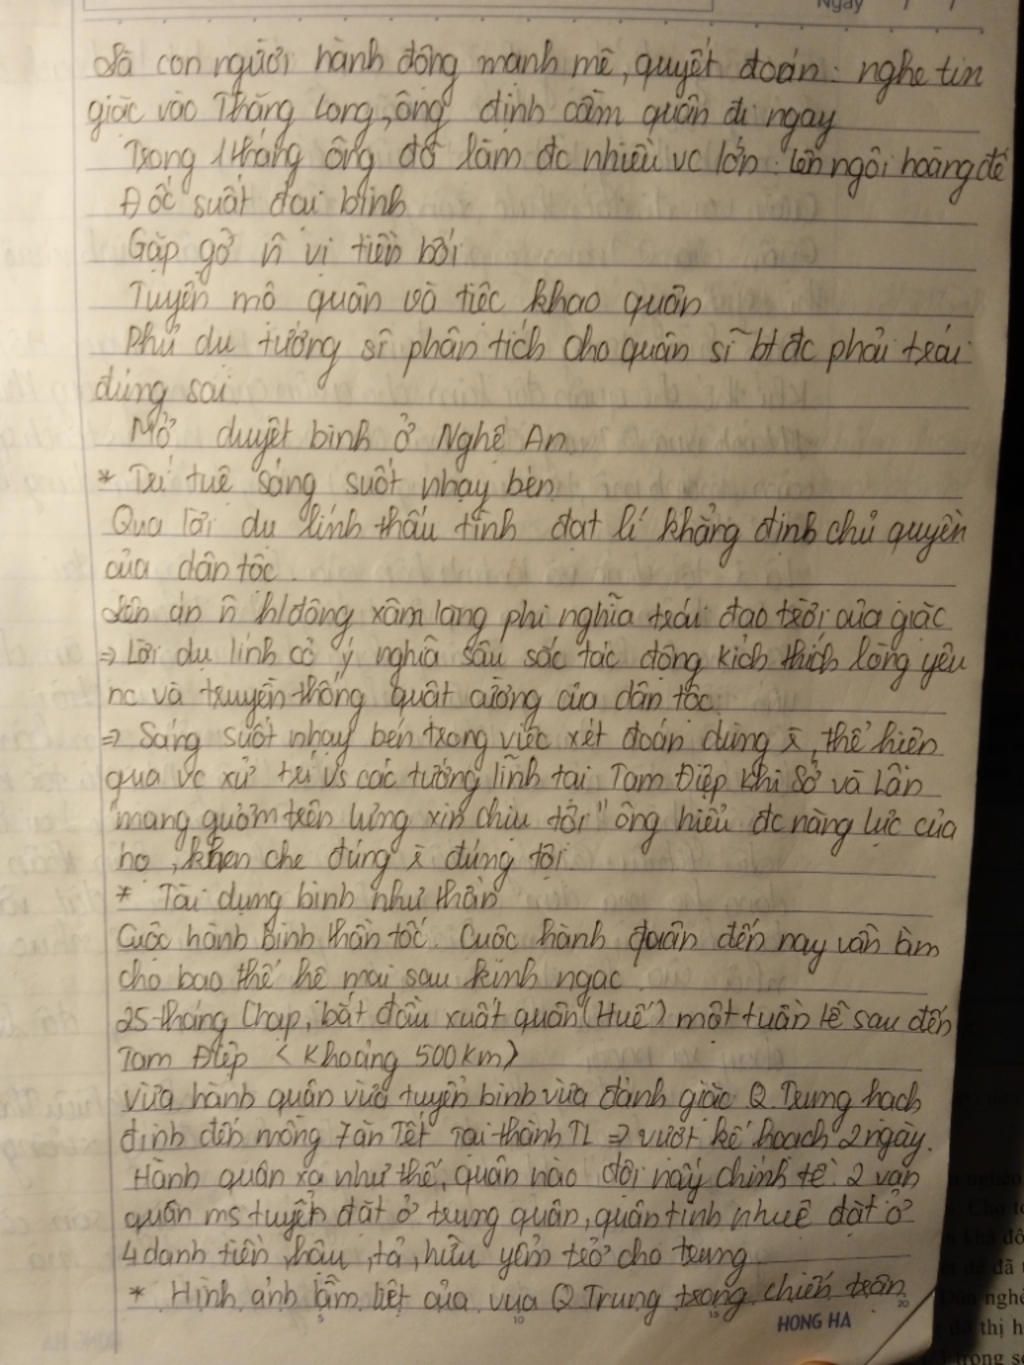 Ngày / /
Là con người hành động mạnh mẽ, quyết đoán: nghe tin
giặc vào Thăng Long, ông định cầm quân đi ngay
Trong 1 tháng ông đã làm đc nhiều vc lớn: lên ngôi hoàng đế
Đốc suất đại binh
Gặp gỡ n vị tiền bối
Tuyển mộ quân và tiệc khao quân
Phủ dụ tướng sĩ phân tích cho quân sĩ bt đc phải trái
đúng sai
Mở duyệt binh ở Nghệ An
* Trí tuệ sáng suốt nhạy bén
Qua lời dụ lính thấu tình đạt lí khẳng định chủ quyền
của dân tộc.
Lên án n h/động xâm lăng phi nghĩa trái đạo trời của giặc
⇒ Lời dụ lính có ý nghĩa sâu sắc tác động kích thích lòng yêu
nc và truyền thống quật cường của dân tộc.
⇒ Sáng suốt nhạy bén trong việc xét đoán dùng ĩ, thể hiện
qua vc xử trí vs các tướng lĩnh tại Tam Điệp khi Sở và Lân
"mang gươm trên lưng xin chịu tội" ông hiểu đc năng lực của
họ, khen chê đúng ĩ đúng tội
* Tài dụng binh như thần
Cuộc hành binh thần tốc. Cuộc hành quân đến nay vẫn làm
cho bao thế hệ mai sau kinh ngạc.
25 tháng Chạp, bắt đầu xuất quân (Huế) một tuần lễ sau đến
Tam Điệp < Khoảng 500km)
vừa hành quân vừa tuyển binh vừa đánh giặc Q. Trung hạch
định đến mồng 7 ăn Tết Tại thành TL ⇒ vượt kế hoạch 2 ngày.
Hành quân xa như thế, quân nào đội nấy chỉnh tề. 2 vạn
quân ms tuyển đặt ở trung quân, quân tinh nhuệ đặt ở
4 danh tiền, hậu, tả, hữu yểm trở cho trung
* Hình ảnh lẫm liệt của vua Q Trung trong chiến trận
5 10 15 20
HONG HA